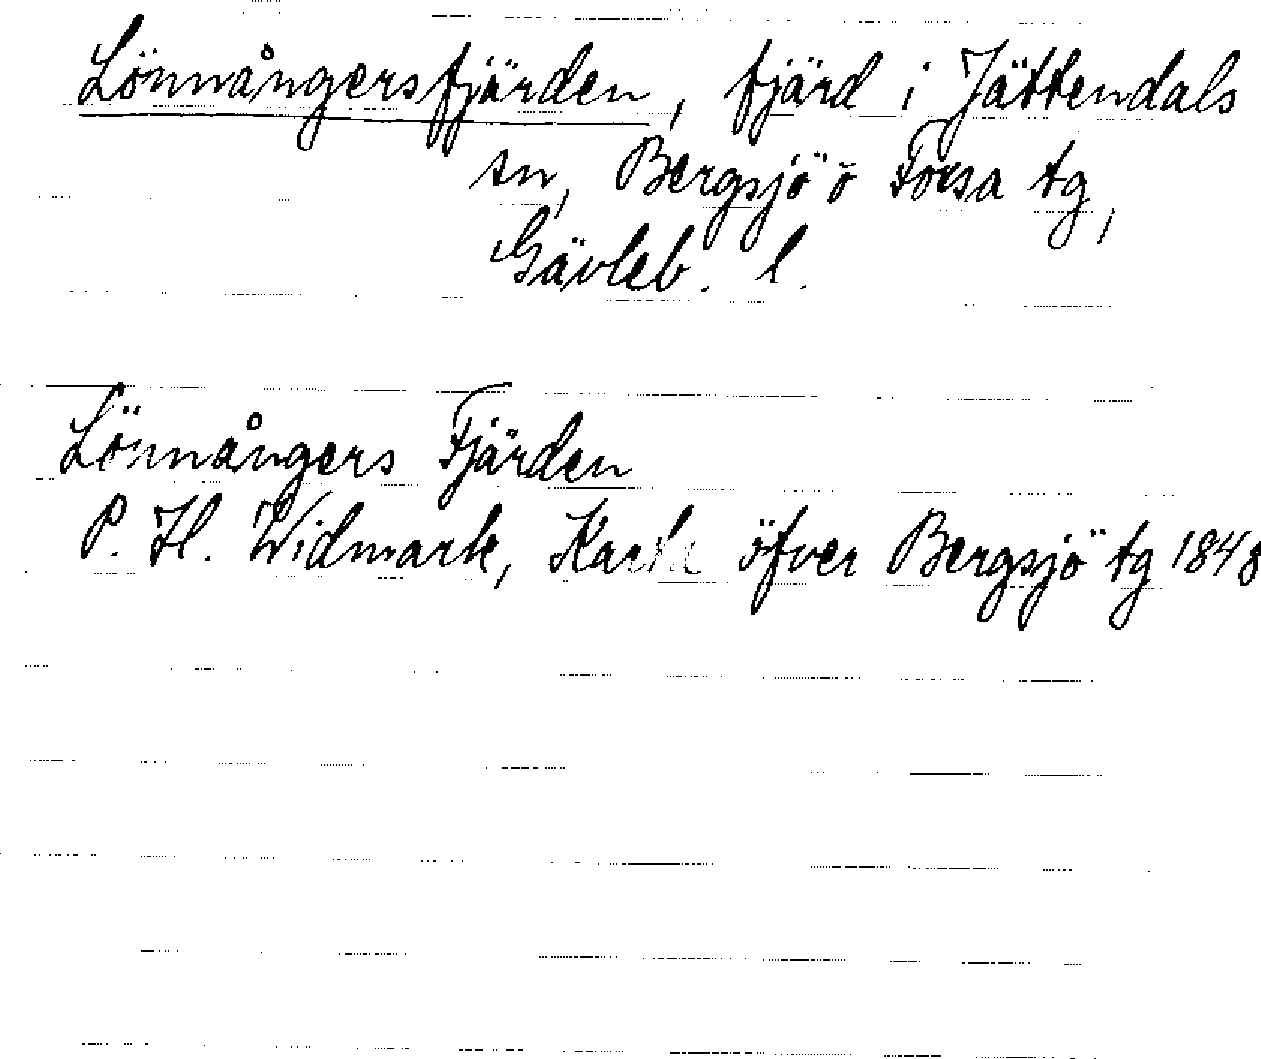 Lönnångersfjärden, fjärd i Jättendals
sn, Bergsjö o Forsa tg,
Gävleb. l.
Lönnångers Fjärden
P. H. Widmark, Karta öfver Bergsjö tg 1848